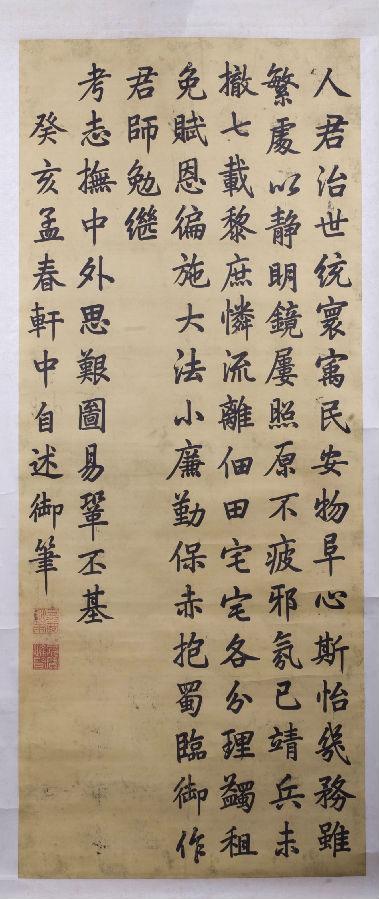 人君治世統寰寓民安物阜心斯怡幾務雖
繁處以静明鏡屢照原不疲邪氛已靖兵未
撤七載黎庶憐流離佃田宅宅各分理蠲租
免賦恩徧施大法小廉勤保赤抱蜀臨御作
君師勉繼
考志撫中外思艱圖易鞏丕基
癸亥孟春軒中自述御筆